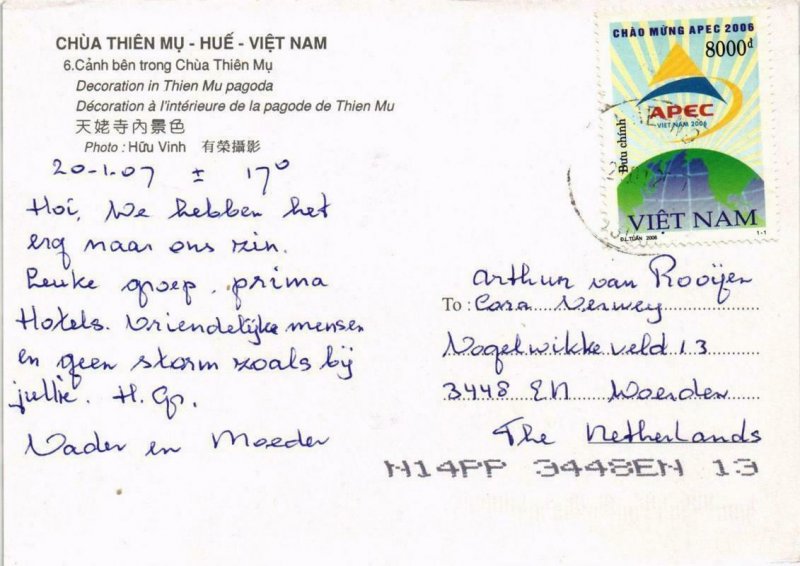 CHÙA THIÊN MỤ - HUẾ - VIỆT NAM
6.Cảnh bên trong Chùa Thiên Mụ
Decoration in Thien Mu pagoda
Décoration à l'intérieure de la pagode de Thien Mu
天姥寺內景色
Photo : Hữu Vinh 有榮攝影
20-1.07 ± 17°
Hoi, We hebben het
erg naar ons zin.
Leuke groep, prima
Hotels. Vriendelijke mensen
en geen storm zoals bij
jullie. H. Gr.
Vader en Moeder
CHÀO MỪNG APEC 2006
8000đ
APEC
VIET NAM 2006
Bưu chính
VIỆT NAM
Đ.L.TUẤN 2006 1-1
Arthur van Rooijen
To : Cora Verwey
Vogelwikkeveld 13
3448 EN Woerden
The Netherlands
N14PP 3448EN 13